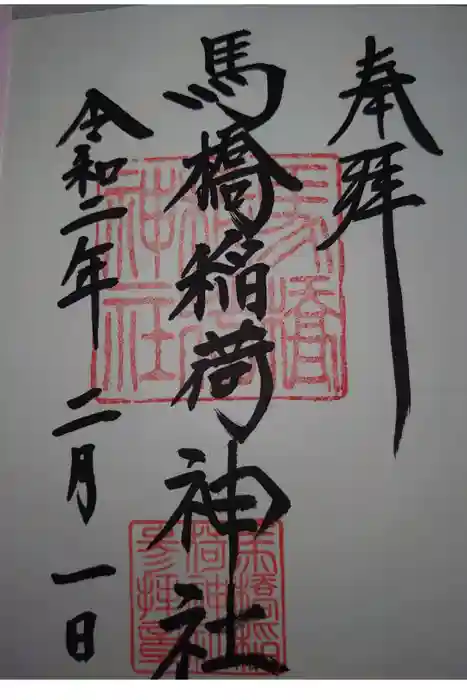 奉拝
馬橋稲荷神社
令和二年 二月 一日
馬橋
稲荷
神社
馬橋稲
荷神社
参拝章